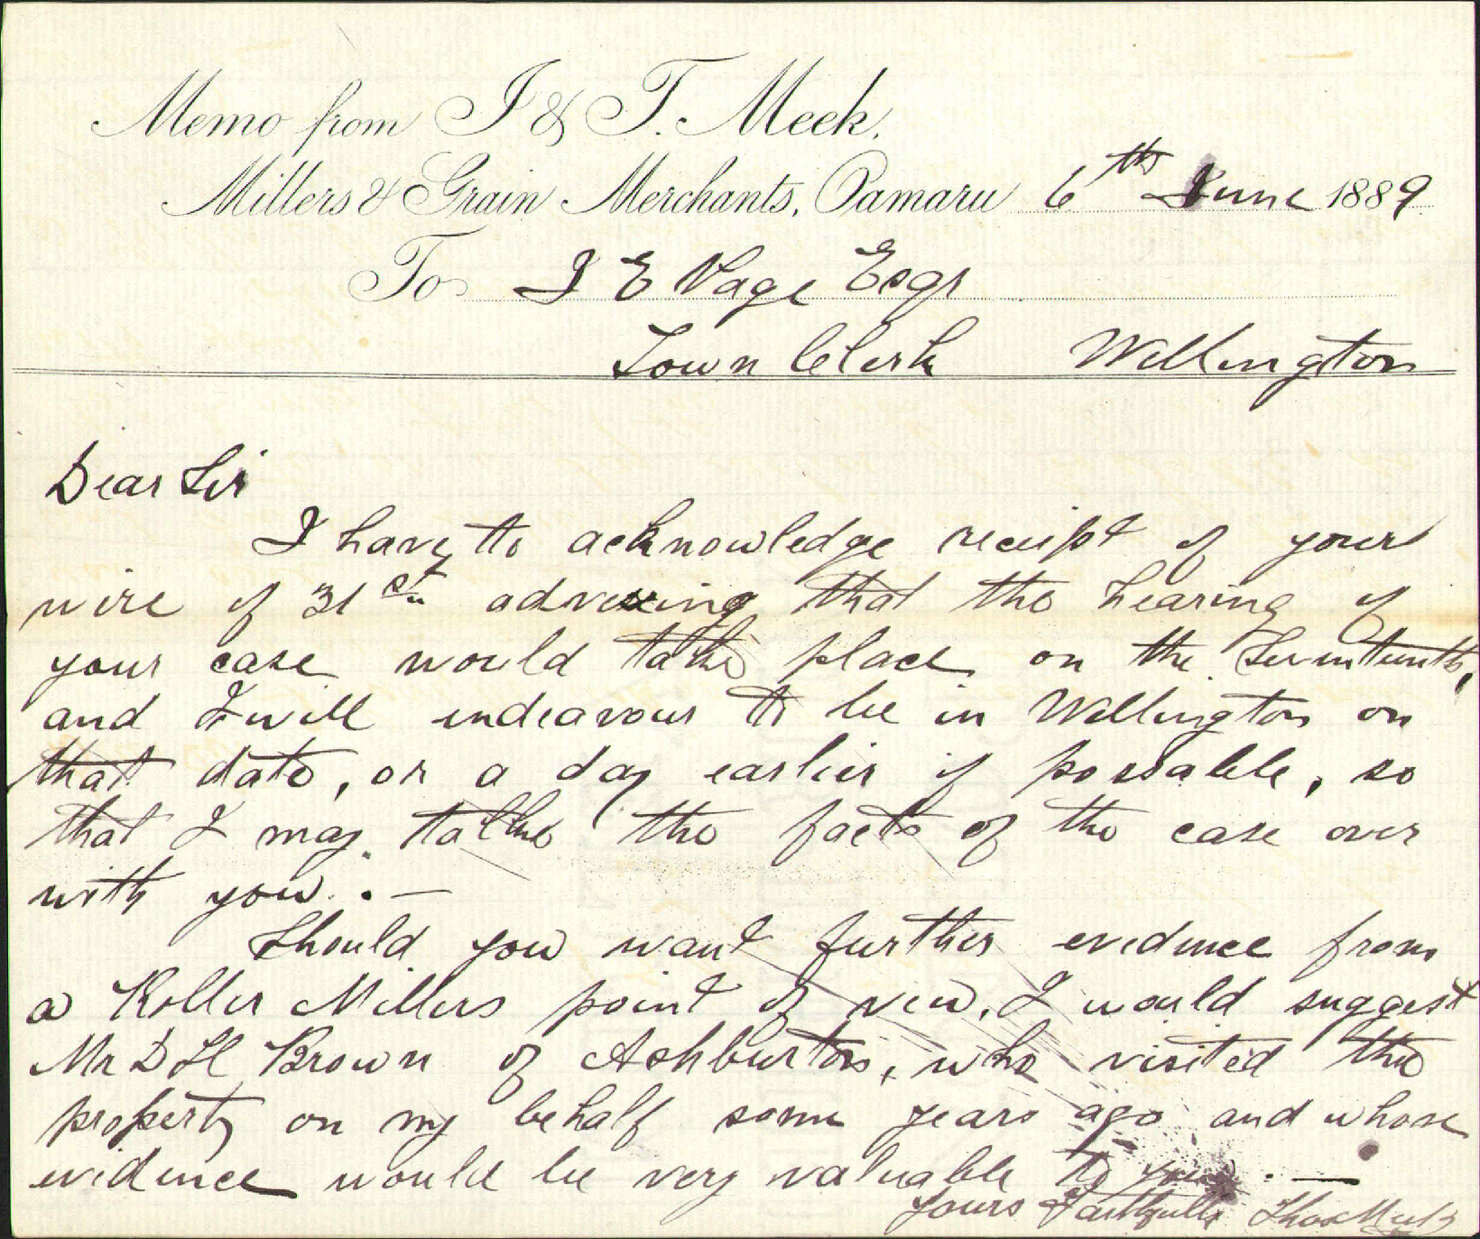 Memo from J & T. Meek.
Millers & Grain Merchants, Oamaru 6th June 1889
To J E Page Esqr
Town Clerk Wellington
Dear Sir
I have to acknowledge receipt of your
wire of 31st advising that the hearing of
your case would take place on the Seventeenth,
and I will endeavour to be in Wellington on
that date, or a day earlier if possable, so
that I may talke the facts of the case over
with you. —
Should you want further evidence from
a Roller Millers point of view, I would suggest
Mr D H Brown of Ashburton, who visited the
property on my behalf some years ago and whose
evidence would be very valuable to you. —
Yours Faithfully Thos Meek